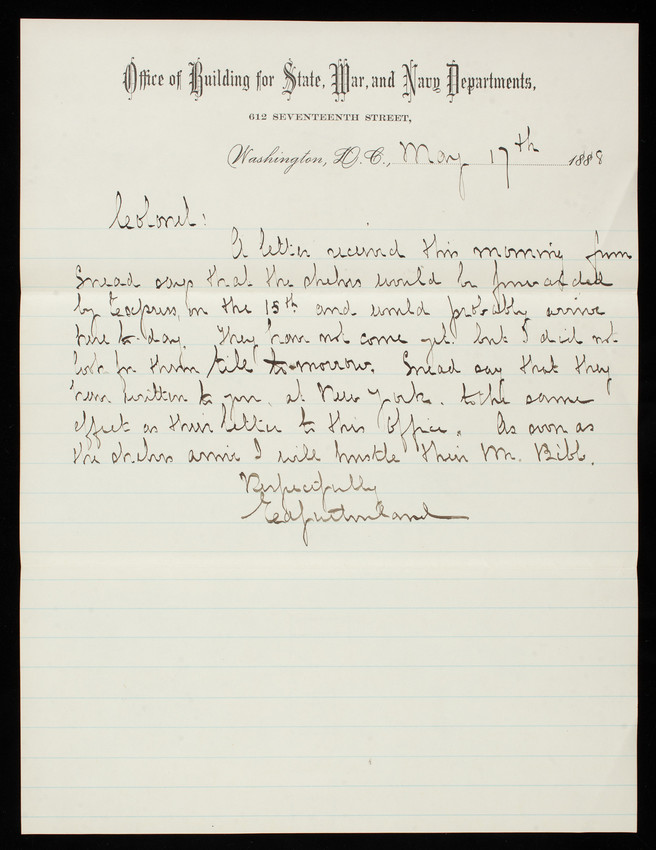 Office of Building for State, War, and Navy Departments,
612 SEVENTEENTH STREET,
Washington, D.C., May 17th 1888
Colonel:
A letter received this morning from
Snead says that the would be forwarded
by Express, on the 15th and would probably arrive
here to-day. They have not come yet but I did not
look for them till to-morrow. Snead say that they
have written to you, at New York, to the same
effect as their letter to this Office. As soon as
the arrive I will hustle their Mr. Bibb.
Respectfully